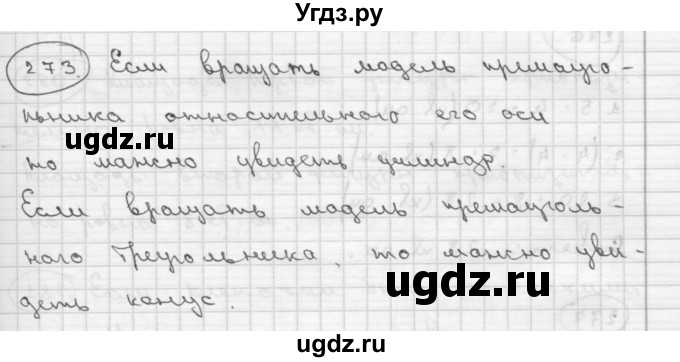 Угдз.ру
273. Если вращать модель прямоуго-
льника относительного его оси
то можно увидеть цилиндр.
Если вращать модель прямоуголь-
ного треугольника, то можно уви-
деть конус.
ugdz.ru
ugdz.ru
ugdz.ru
ugdz.ru
ugdz.ru